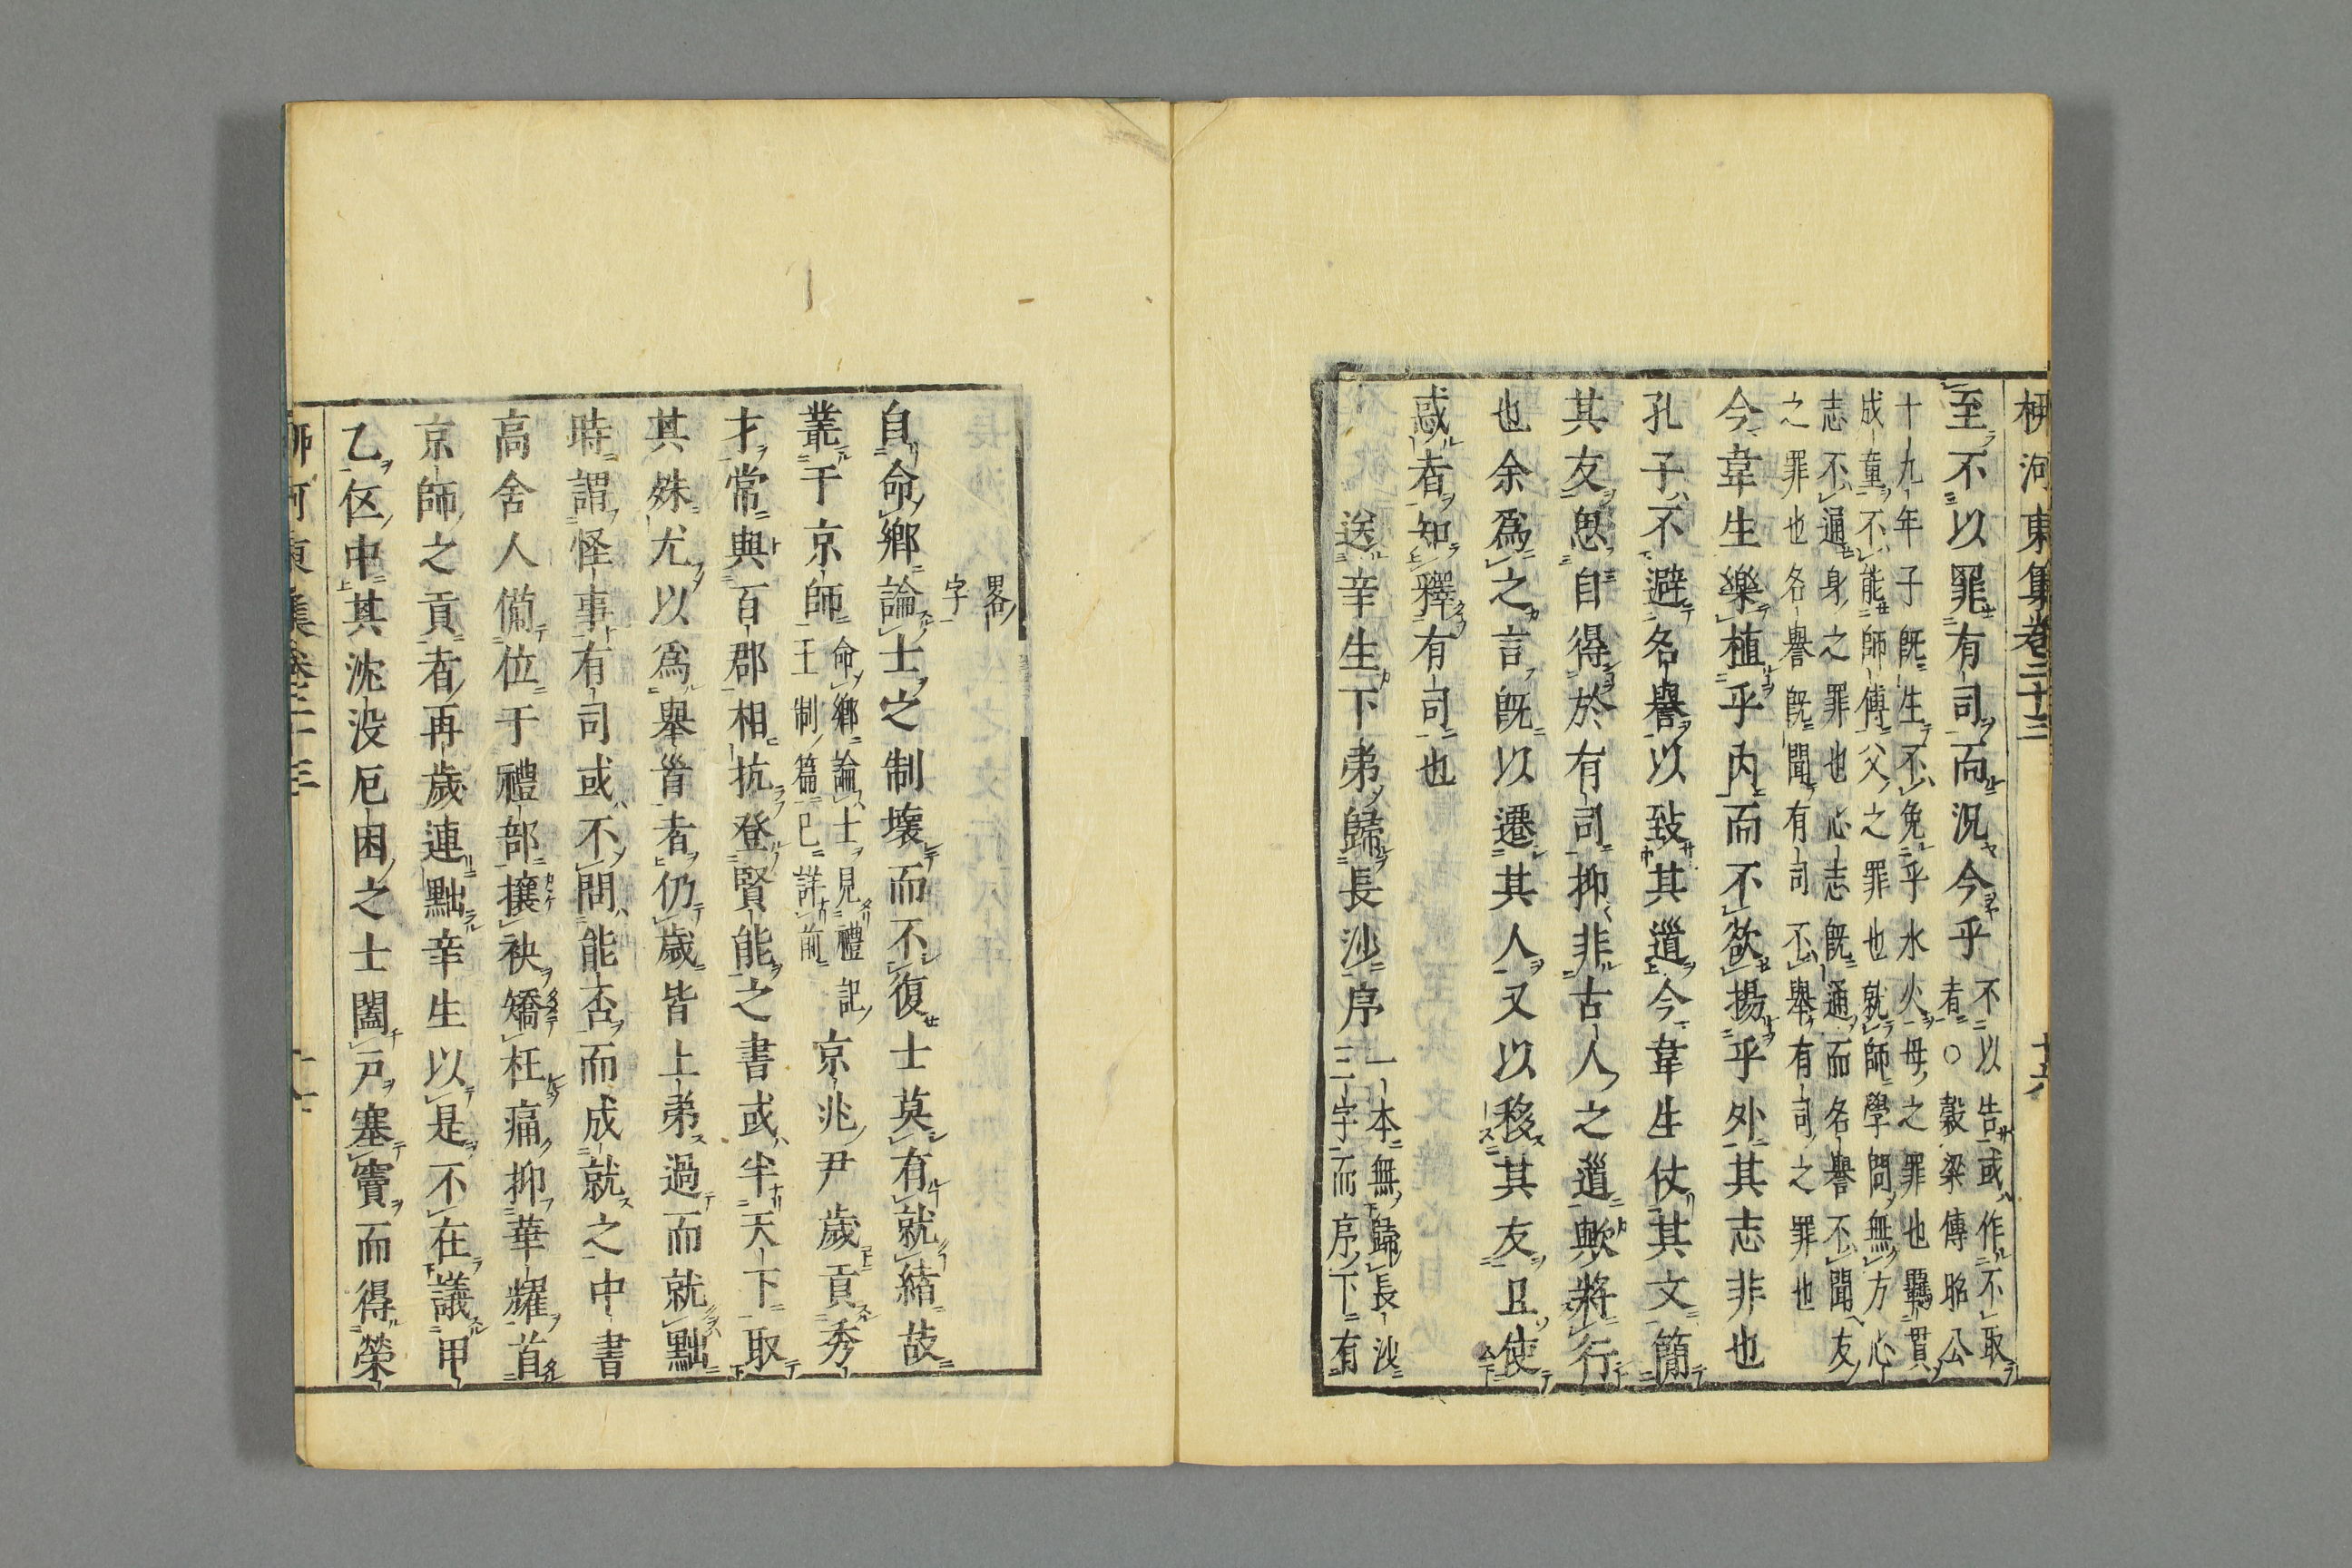 柳河東集卷二十三
至不以罪有司而況今乎不以告或作不取
者○穀梁傳昭公
十九年子既生不免乎水火母之罪也羈貫
成童不能師傅父之罪也就師學問無方心
志不通身之罪也心志既通而名譽不聞友
之罪也名譽既聞有司不舉有司之罪也
今韋生樂植乎内而不欲揚乎外其志非也
孔子不避名譽以致其道今韋生仗其文簡
其友思自得於有司抑非古人之道歟將行
也余爲之言既以遷其人又以移其友且使
惑者知釋有司也
送辛生下弟歸長沙序一本無歸長沙
三字而序下有
畧
字
自命鄉論士之制壞而不復士莫有就緒故
叢于京師命鄉論士見禮記
王制篇已詳前京兆尹歲貢秀
才常與百郡相抗登賢能之書或半天下取
其殊尤以爲舉首者仍歲皆上弟過而就黜
時謂怪事有司或不問能否而成就之中書
高舍人備位于禮部攘袂矯枉痛抑華耀首
京師之貢者再歲連黜辛生以是不在議甲
乙伍中其沈没厄困之士闔戸塞竇而得榮
柳河東集卷二十三